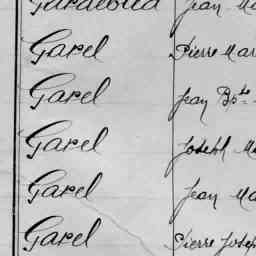 Jean
Garel Pierre Mar
Garel Jean Bpte
Garel Joseph Ma
Garel Jean Ma
Garel Pierre Josep